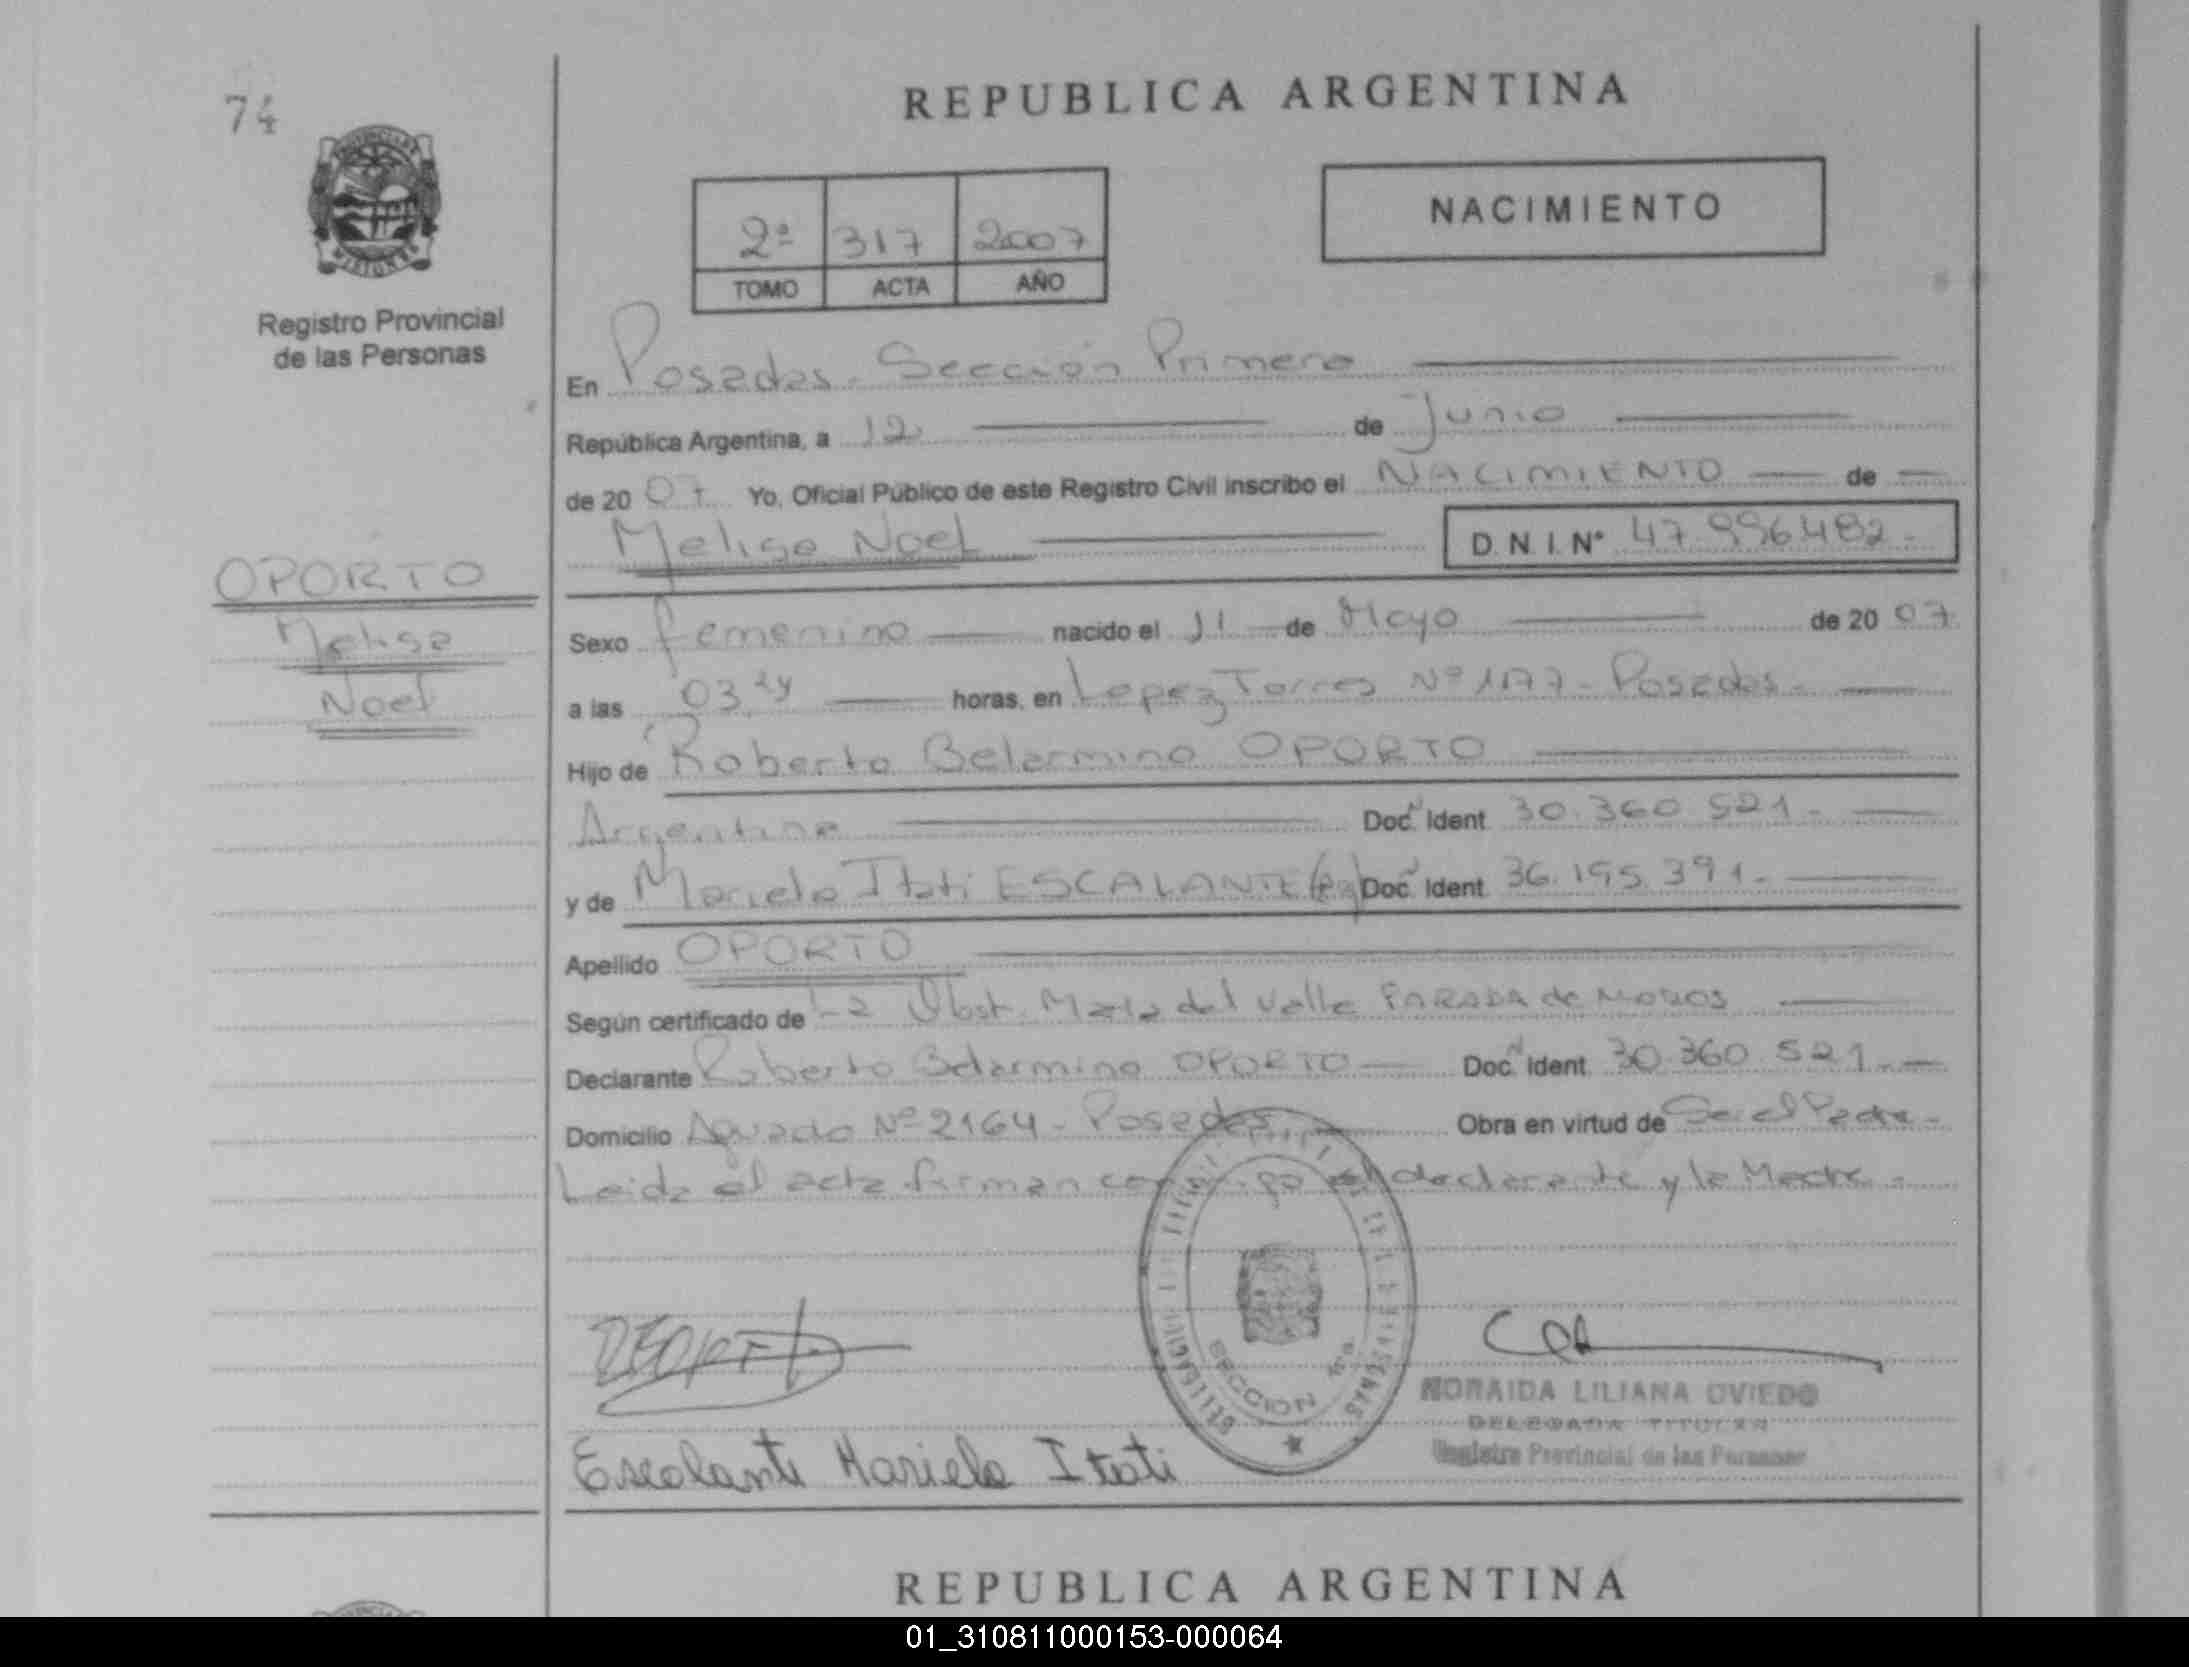 74
REPUBLICA ARGENTINA
NACIMIENTO
2ª 317 2007
TOMO ACTA AÑO
Registro Provincial
de las Personas
En Posadas - Sección Primera
República Argentina, a 12 de Junio
de 20 07 Yo, Oficial Público de este Registro Civil inscribo el NACIMIENTO de
Melisa Noel D.N.I. Nº 47.996.482.-
OPORTO
Melisa
Noel
Sexo femenino nacido el 11 de Mayo de 20 07
a las 03 24 horas, en Lopez Torres Nº 1177 - Posadas -
Hijo de Roberto Belarmino OPORTO
Argentina Doc. Ident. 30.360.521.-
y de Mariela Itati ESCALANTE Doc. Ident. 36.195.391.-
Apellido OPORTO
Según certificado de La Obst. Maria del Valle PARADA de
Declarante Roberto Belarmino OPORTO Doc. Ident. 30.360.521.-
Domicilio Aguado Nº 2164 - Posadas Obra en virtud de Ser el Padre -
Leida el acta firman conmigo el declarante y la Madre -
SECCION 1ra
OPORTO
Escalante Mariela Itati
NORAIDA LILIANA OVIEDO
DELEGADA TITULAR
Registro Provincial de las Personas
REPUBLICA ARGENTINA
01_310811000153-000064